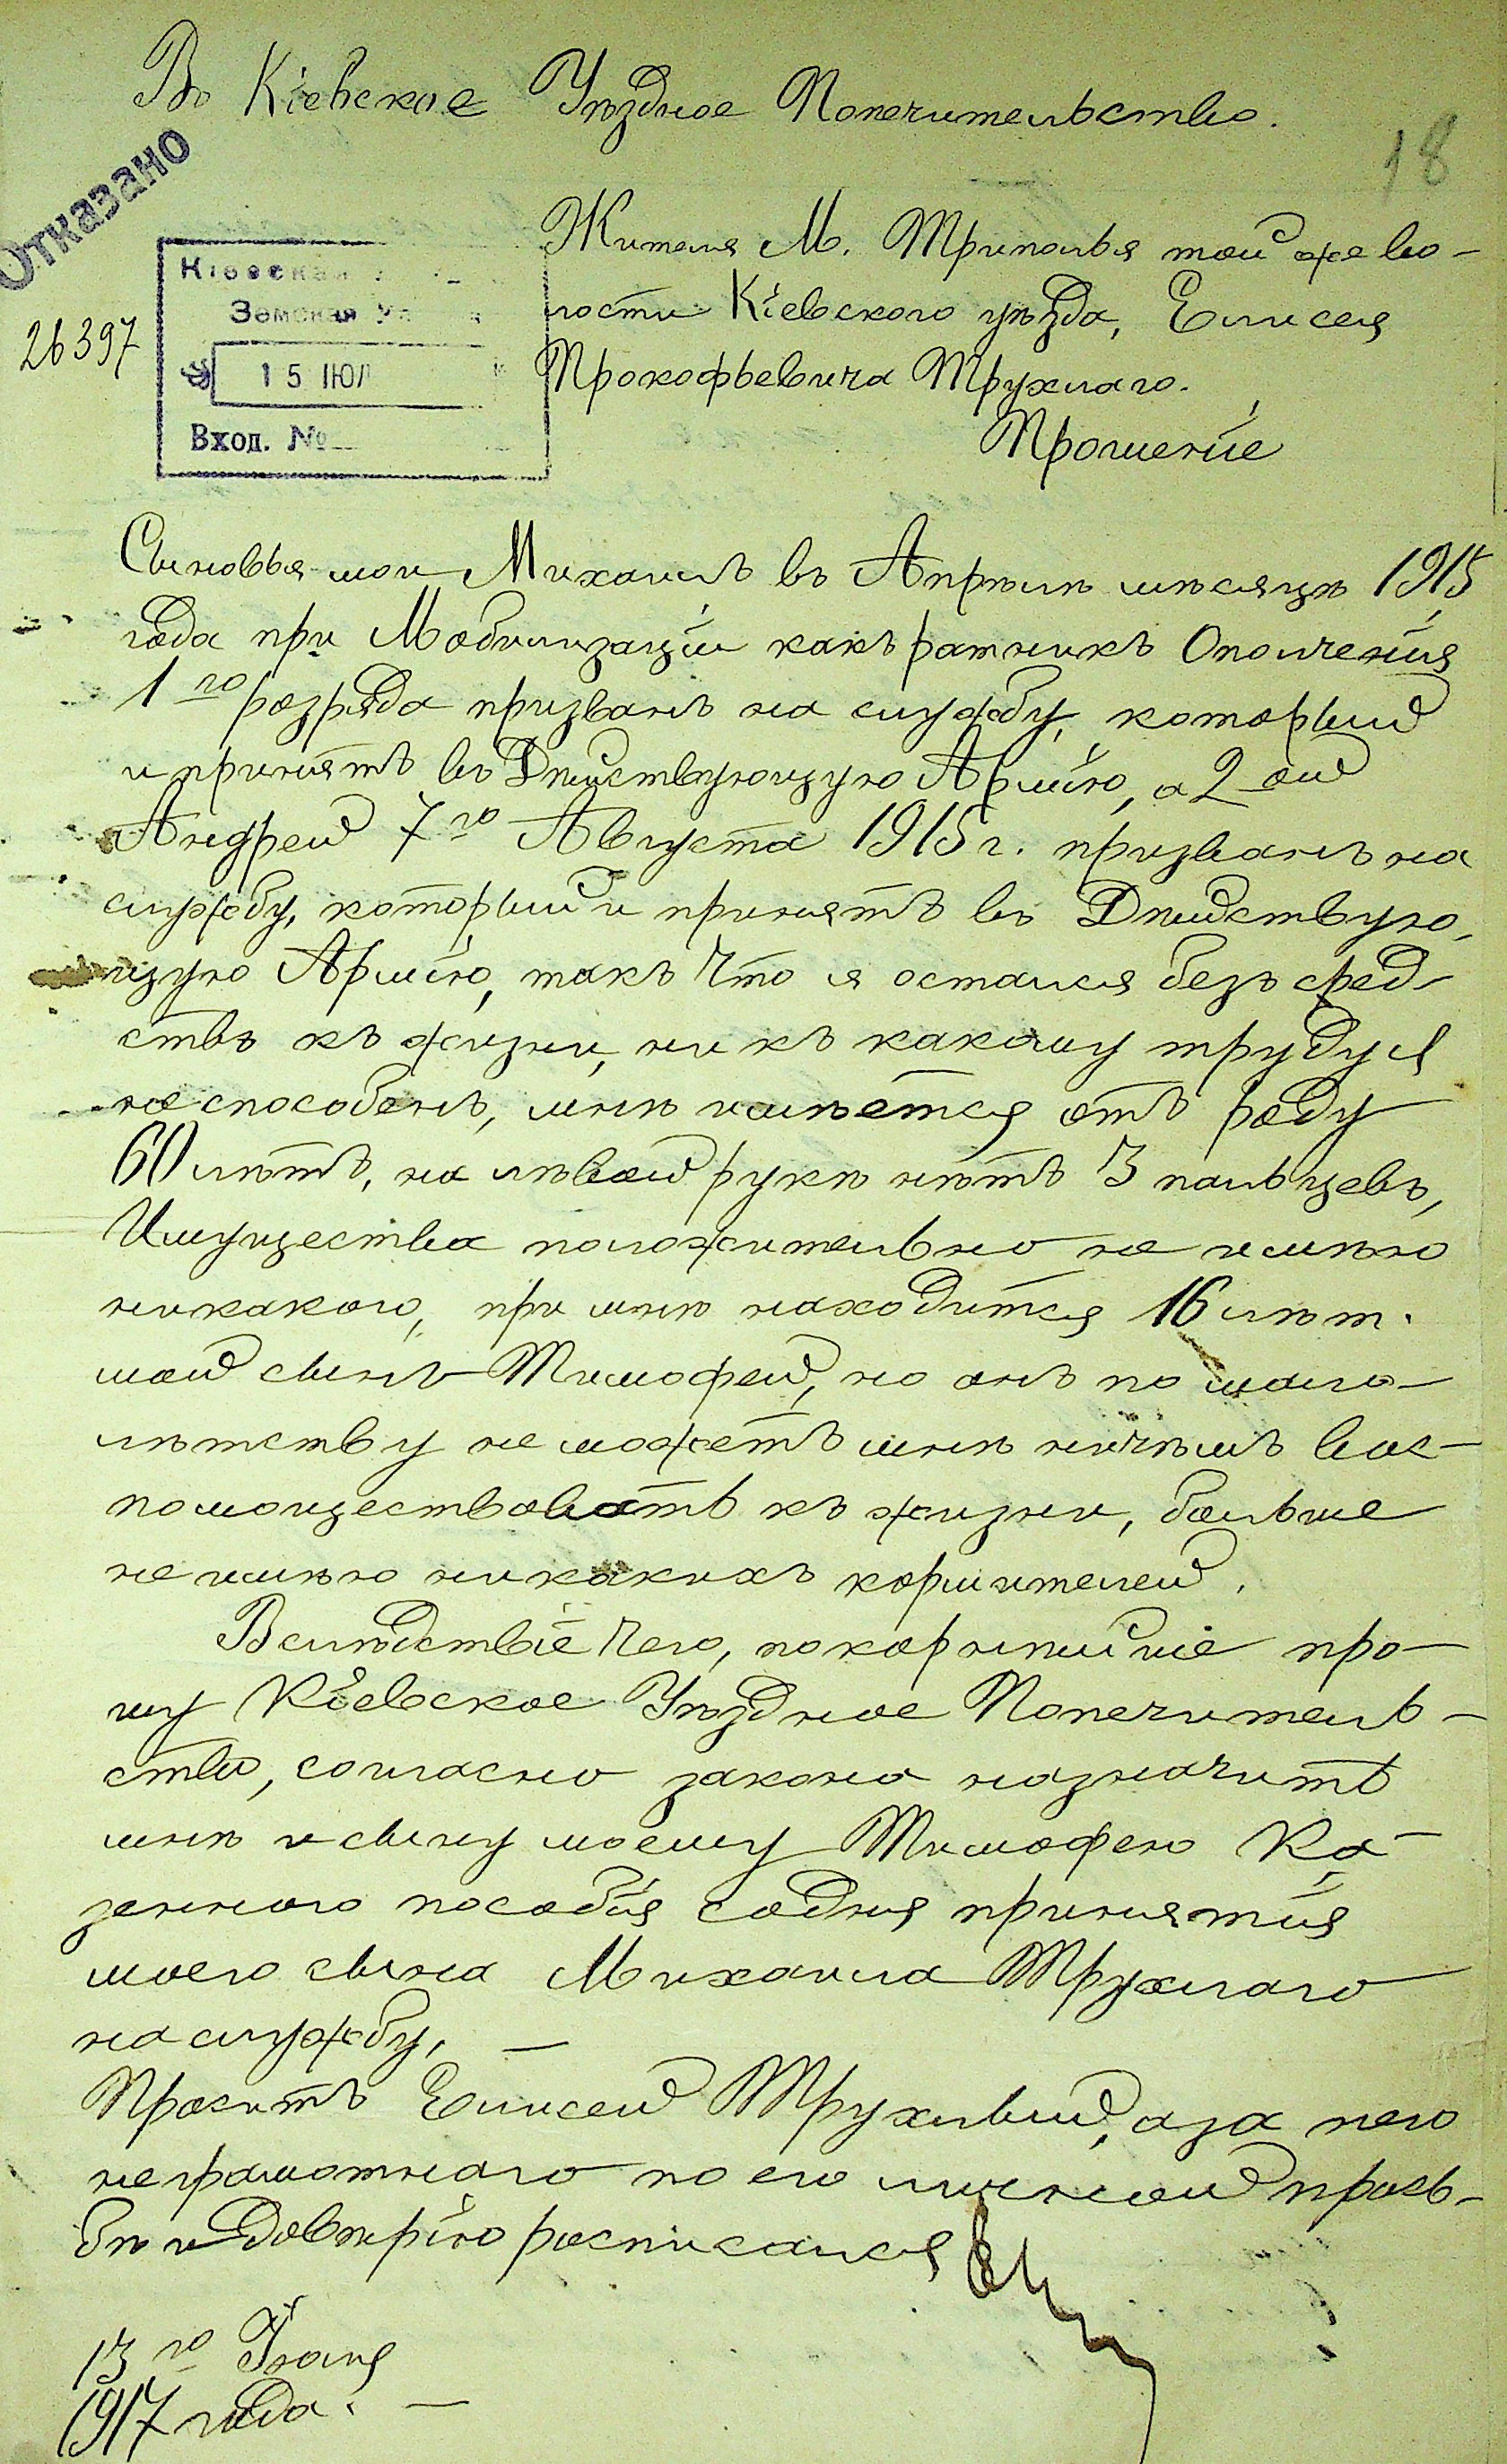 Въ Кіевское Уѣздное Попечительство.
18
Отказано
26397
Кіевская
Земская
15 ІЮЛ
Вход. №
Жителя М. Триполья той же во-
лости Кіевского уѣзда, Елисея
Прокофьевича Трухлаго.
Прошеніе
Сыновья мои Михаилъ въ Апрѣлѣ мѣсяцѣ 1915
года при Мобилизаціи какъ ратникъ Ополченія
1го разряда призванъ на службу, который
и принятъ въ Дѣйствующую Армію, а 2-ой
Андрей 7го Августа 1915 г. призванъ на
службу, который и принятъ въ Дѣйствую-
щую Армію, такъ что я остался безъ сред-
ствъ къ жизни, ни къ какому труду я
не способенъ, мнѣ имѣется отъ роду
60 лѣтъ, на лѣвой рукѣ нѣтъ 3 пальцевъ,
Имущества положительно не имѣю
никакого, при мнѣ находится 16 лѣт.
мой сынъ Тимофей, но онъ по мало-
лѣтству не можетъ мнѣ ничѣмъ вос-
помоществовать къ жизни, больше
не имѣю никакихъ кормителей.
Вслѣдствіе чего, покорнѣйше про-
шу Кіевское Уѣздное Попечитель-
ство, согласно закона назначить
мнѣ и сыну моему Тимофею Ка-
зенного пособія содня принятія
моего сына Михаила Трухлаго
на службу. —
Проситъ Елисей Трухлый, а за него
неграмотнаго по его личной прось-
бѣ и довѣрію росписался
13го Іюля
1917 года. —